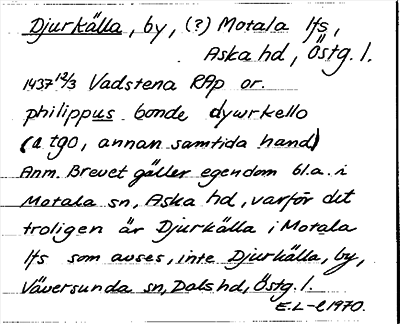 Djurkälla, by, (?) Motala lfs,
Aska hd, Östg. l.
1437 12/3 Vadstena RAp or.
philippus bonde dywrkello
(a tgo, annan samtida hand)
Anm. Brevet gäller egendom bl.a. i
Motala sn, Aska hd, varför det
troligen är Djurkälla i Motala
lfs som avses, inte Djurkälla, by,
Väversunda sn, Dals hd, Östg. l.
E.L-l 1970.